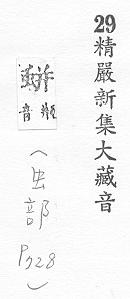 29精嚴新集大藏音
音
(虫部
P728)